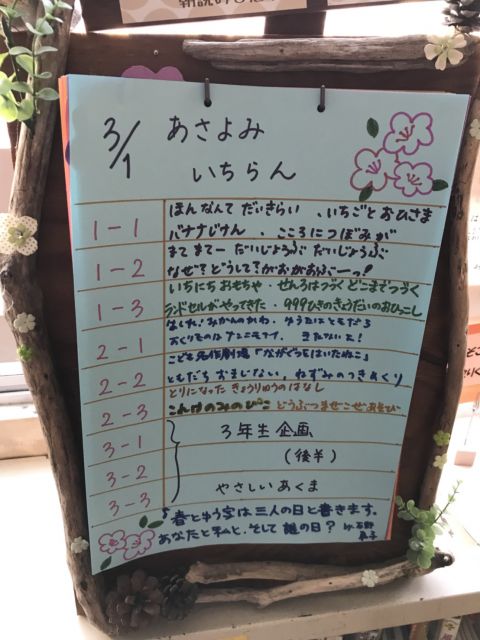 3/1 あさよみ
いちらん
1-1 ほんなんて だいきらい 、いちごと おひさま
バナナじけん 、こころにつぼみが
1-2 まてまてー だいじょうぶ だいじょうぶ
なぜ?どうして?がおがおぶーっ!
1-3 いちにち おもちゃ・せんろはつづく どこまでつづく
ランドセルがやってきた・999ひきのきょうだいのおひっこし
2-1 みかんのかわ
おくりものは ナンニモナイ、
2-2 こども名作劇場「ながぐつをはいたねこ」
ともだち おまじない、ねずみのつきめくり
2-3 とりになった きょうりゅうのはなし
こんげつのみのぴこ どうぶつまぜこぜあそび
3-1 3年生企画
3-2 (後半)
3-3 やさしいあくま
春とゆう字は三人の日と書きます。
あなたと私と、そして誰の日? by.石野
真子